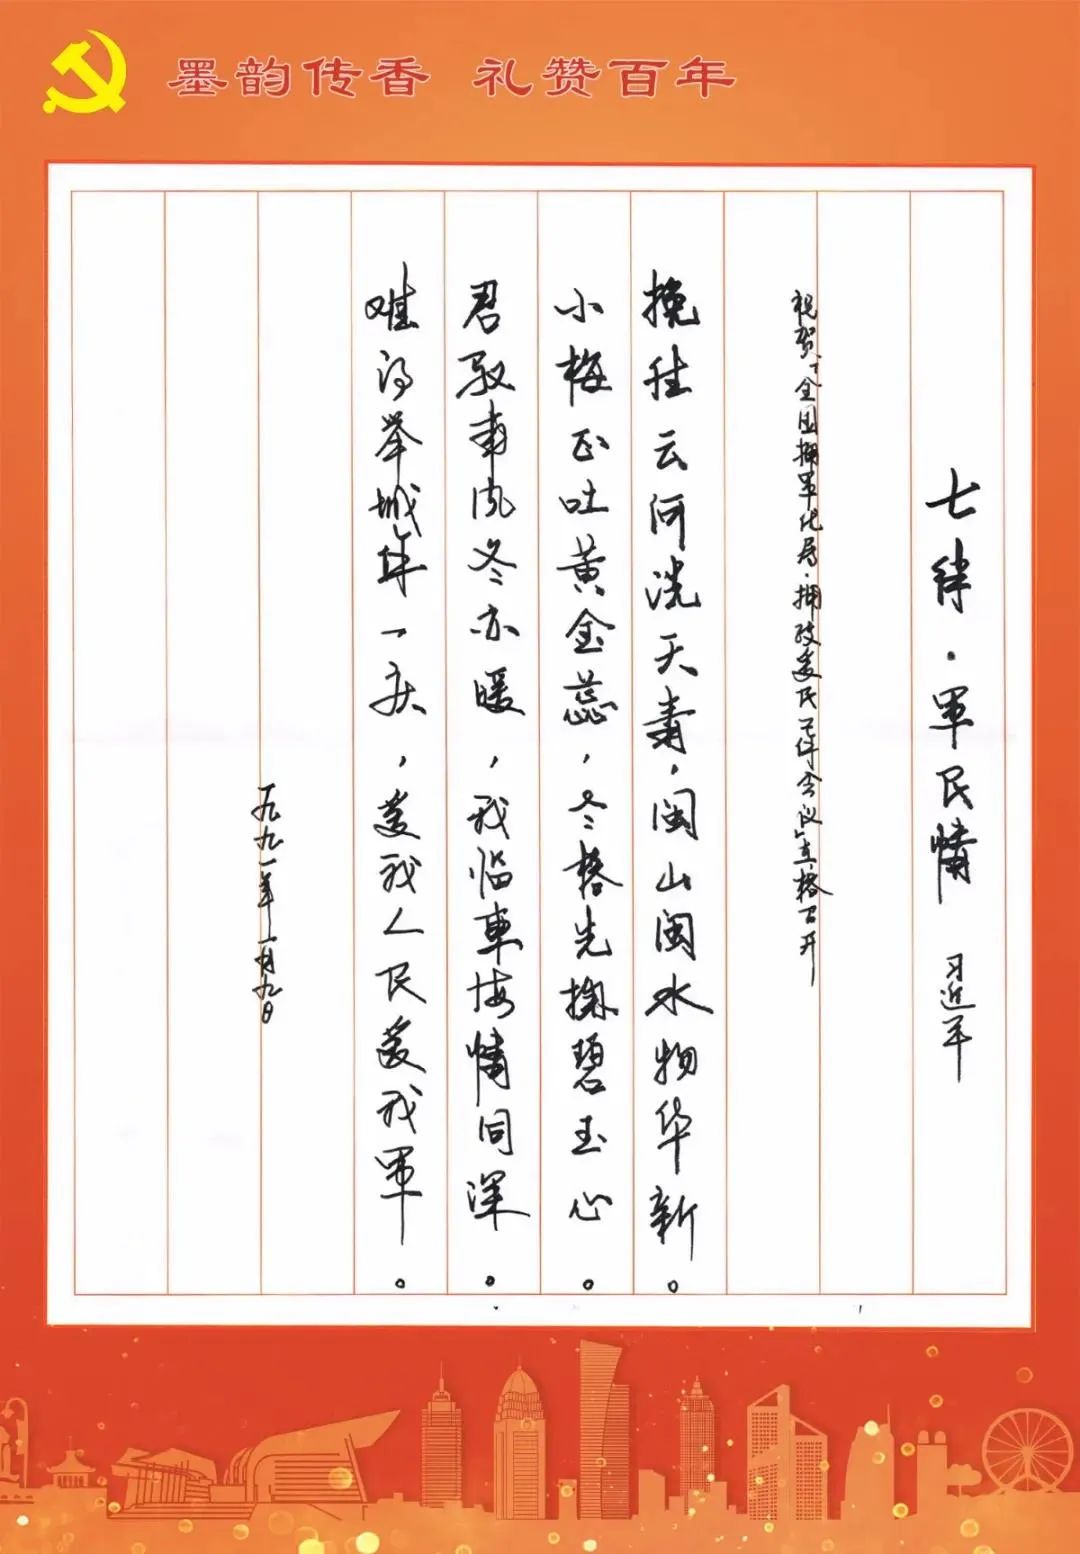 墨韵传香 礼赞百年
七律·軍民情 习近平
祝贺"全国拥军优属、拥政爱民工作会议"在榕召开
挽住云河洗天青，闽山闽水物华新。
小梅正吐黄金蕊，冬榕先掬碧玉心。
君驭南风冬亦暖，我临東海情同深。
难得举城作一庆，爱我人民爱我軍。
一九九一年一月九日